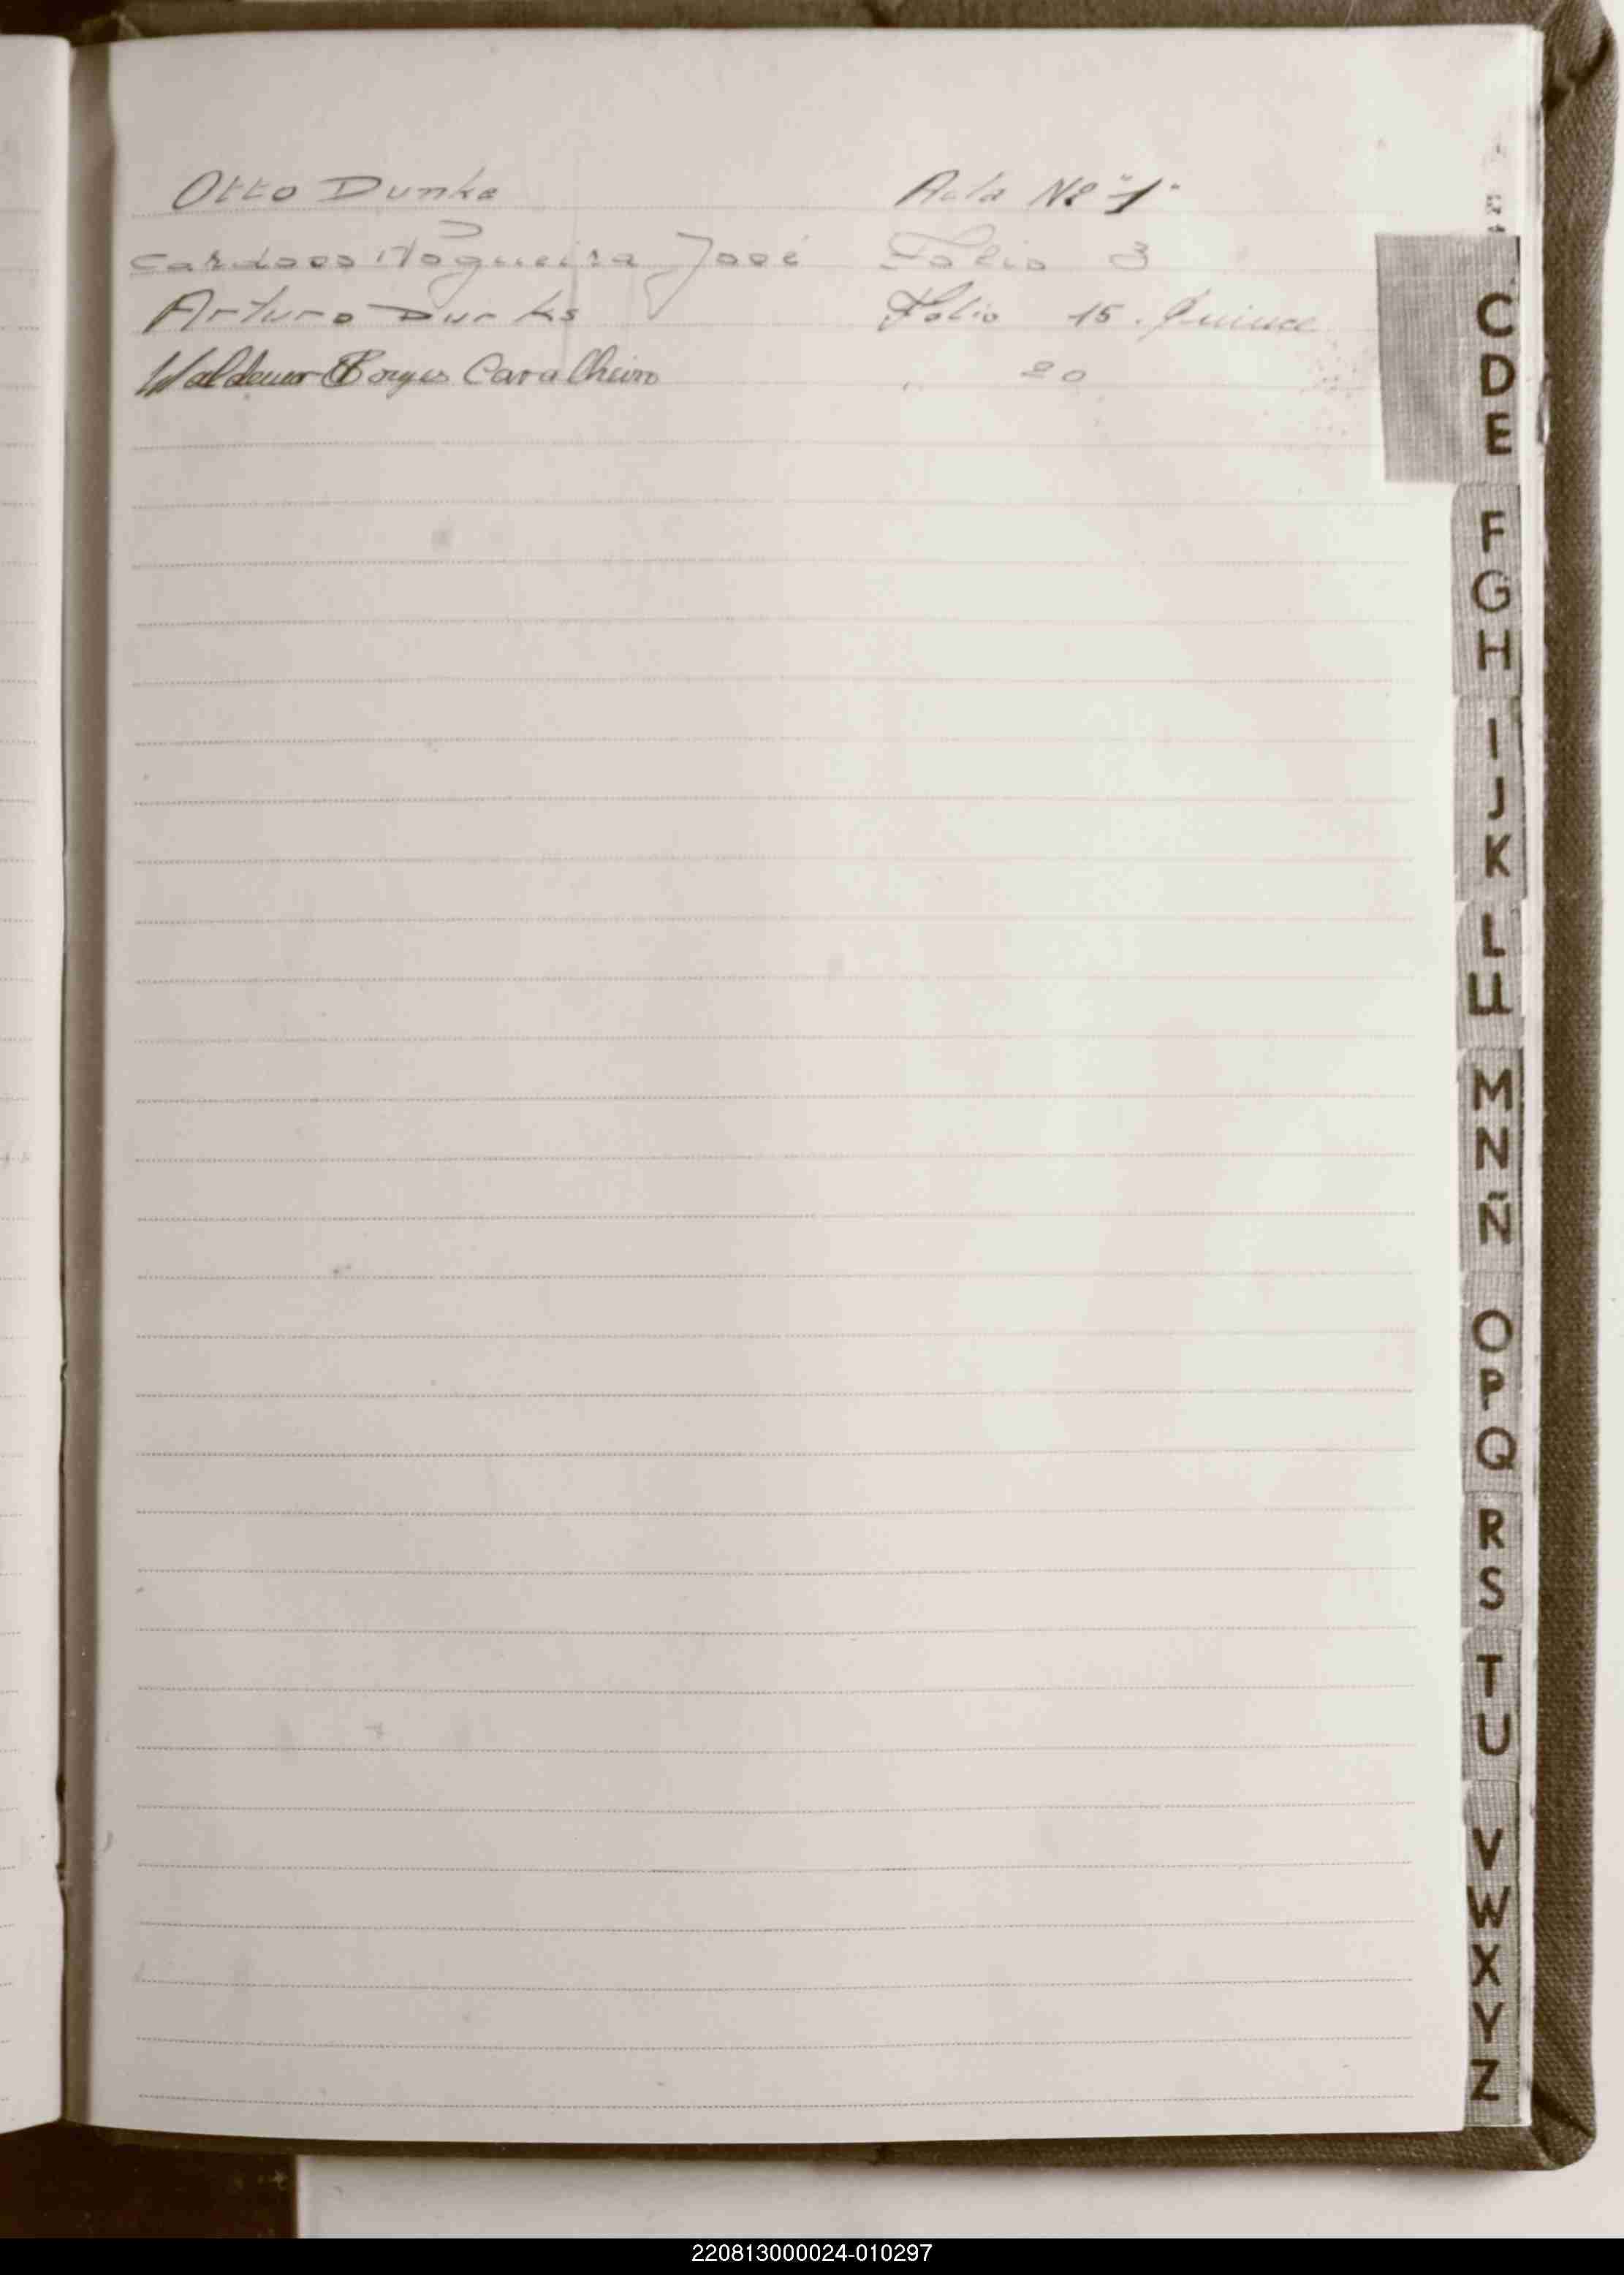 Otto Dunke Acta Nº "1"
Cardoso Nogueira José Folio 3
Arturo Dunks Folio 15. Quince
Waldemar Borges Cavalheiro " 20
C
D
E
F
G
H
I
J
K
L
LL
M
N
Ñ
O
P
Q
R
S
T
U
V
W
X
Y
Z
220813000024-010297